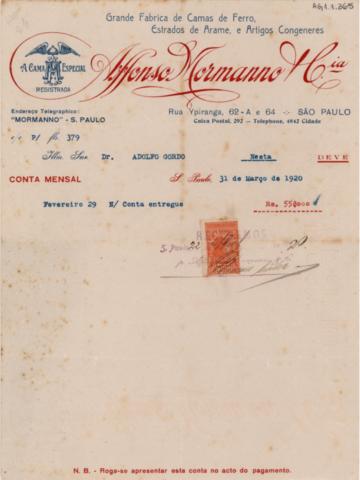 AG.1.1.365
Grande Fabrica de Camas de Ferro,
Estrados de Arame, e Artigos Congeneres
Affonso Mormanno & Cia
A CAMA ESPECIAL
REGISTRADA
Endereço Telegraphico:
"MORMANNO" - S. PAULO
Rua Ypiranga, 62-A e 64 -:- SÃO PAULO
Caixa Postal, 292 - Telephone, 4842 Cidade
fls 379
Illm. Snr. Dr. ADOLFO GORDO Nesta DEVE
CONTA MENSAL S. Paulo, 31 de Março de 1920
Fevereiro 29 N/ Conta entregue Rs. 55$000
RECEBEMOS
S. Paulo 22 20
N. B. - Roga-se apresentar esta conta no acto do pagamento.